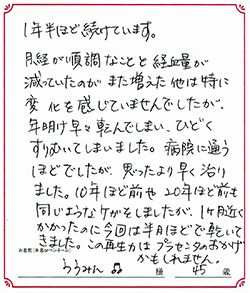 1年半ほど続けています。
月経が順調なことと経血量が
減っていたのがまた増えた他は特に
変化を感じていませんでしたが、
年明け早々転んでしまい、ひどく
すりむいてしまいました。病院に通う
ほどでしたが、思ったより早く治り
ました。10年ほど前や20年ほど前も
同じようなケガをしましたが、1ヶ月近く
かかったのに今回は半月ほどで乾いて
きました。この再生力はプラセンタのおかげ
かもしれません。
お名前(本名orペンネーム)
うらみん♫ 様 45 歳